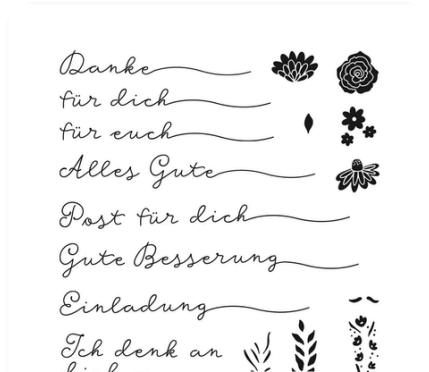 Danke
für dich
für euch
Alles Gute
Post für dich
Gute Besserung
Einladung
Ich denk an